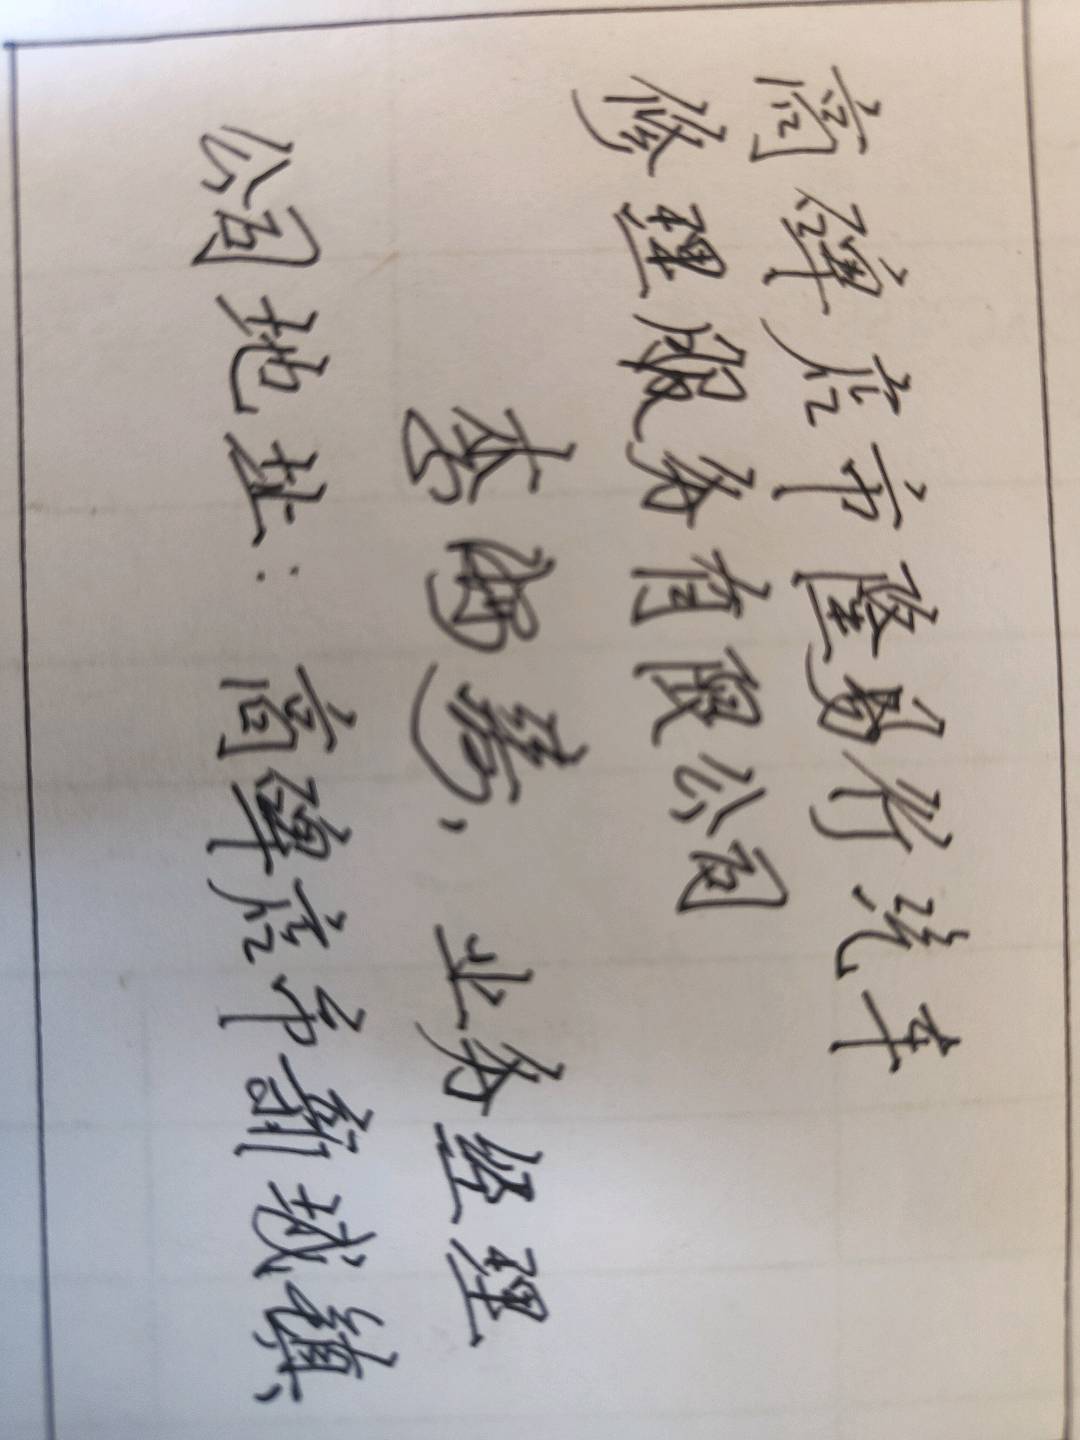 高碑店市隆易行汽车
修理服务有限公司
李海涛，业务经理
公司地址：高碑店市新城镇